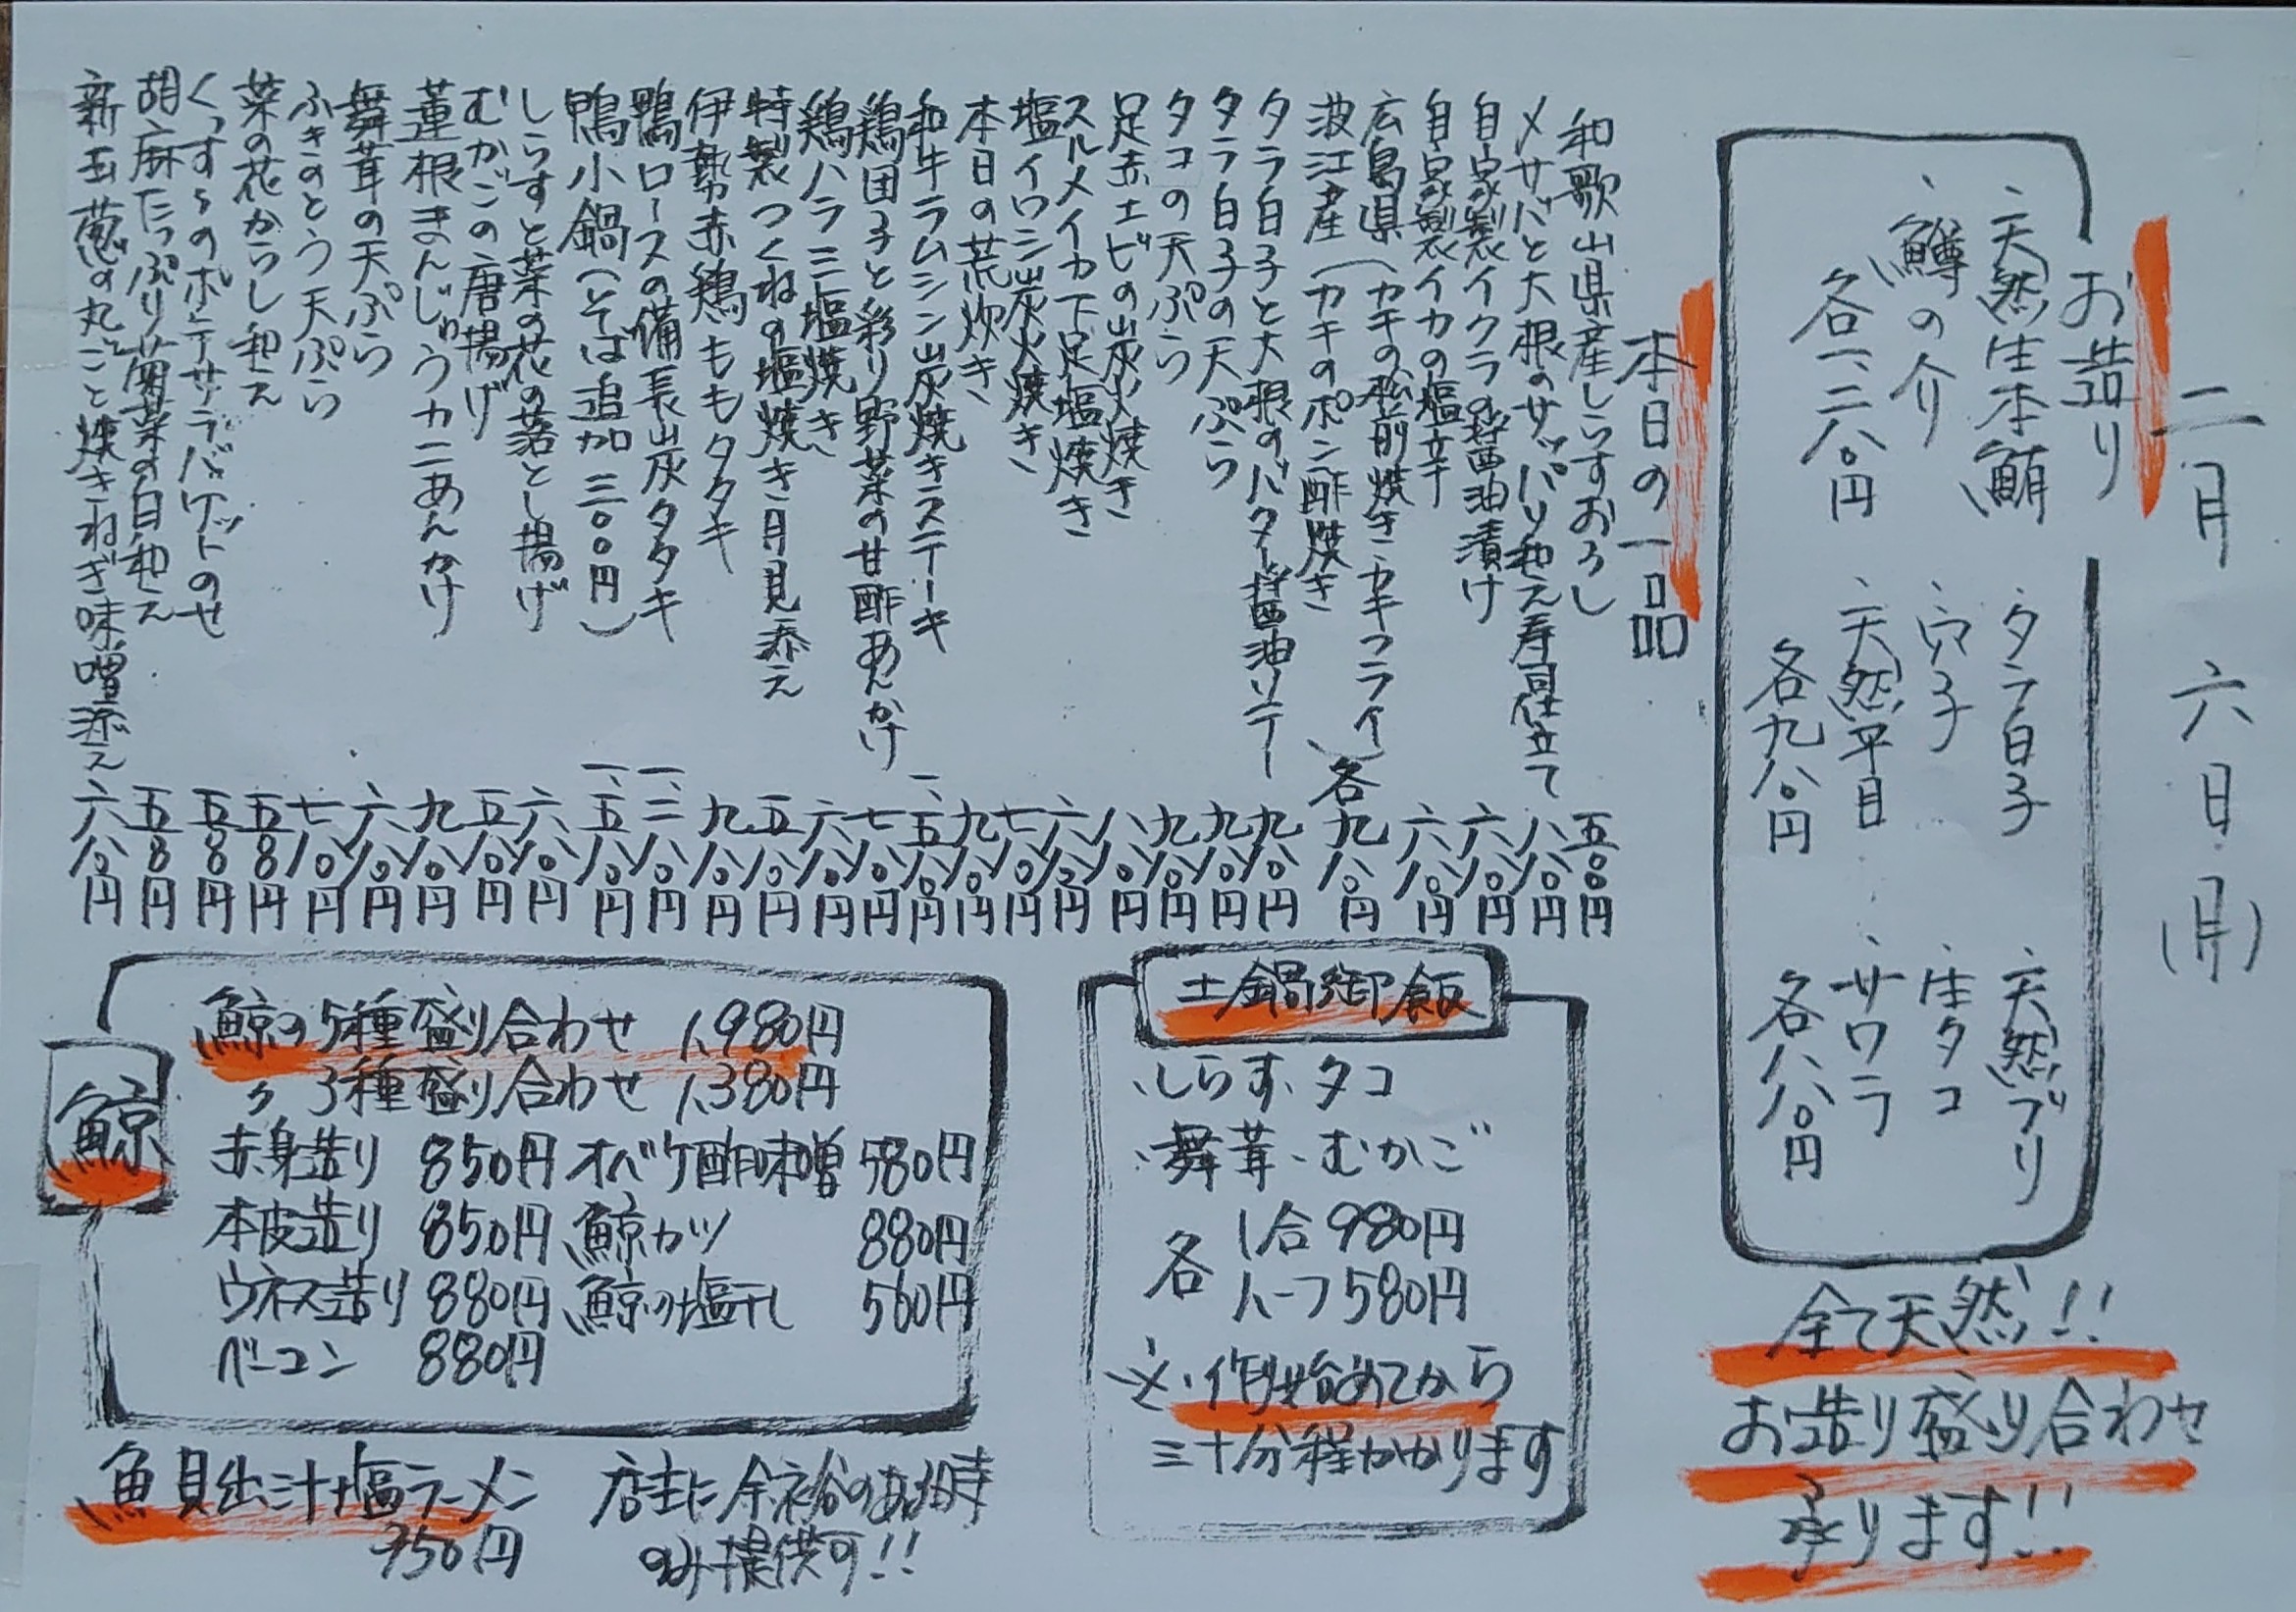 二月六日(月)
お造り
・天然生本鮪
・鱒の介
各一、二八〇円
・タラ白子
・穴子
・天然平目
各九八〇円
・天然ブリ
・生タコ
・サワラ
各八八〇円
全て天然!!
お造り盛り合わせ
承ります!!
本日の一品
和歌山県産しらすおろし 五〇〇円
〆サバと大根のサッパリ和え寿司仕立て 八八〇円
自家製イクラの醤油漬け 六八〇円
自家製イカの塩辛 六八〇円
広島県(カキの松前焼き・カキフライ)
波江産(カキのポン酢焼き 各九八〇円
タラ白子と大根のバター醤油ソテー 九八〇円
タラ白子の天ぷら 九八〇円
タコの天ぷら 九八〇円
足赤エビの炭火焼き 八八〇円
スルメイカ下足塩焼き 六八〇円
塩イワシ炭火焼き 七八〇円
本日の荒炊き 九八〇円
和牛ラムシン炭焼きステーキ 一、五八〇円
鶏団子と彩り野菜の甘酢あんかけ 七八〇円
鶏ハラミ塩焼き 六八〇円
特製つくねの塩焼き月見添え 五八〇円
伊勢赤鶏ももタタキ 九八〇円
鴨ロースの備長炭タタキ 一、二八〇円
鴨小鍋(そば追加 三〇〇円) 一、五八〇円
しらすと菜の花の落とし揚げ 六八〇円
むかごの唐揚げ 五八〇円
蓮根まんじゅうカニあんかけ 九八〇円
舞茸の天ぷら 六八〇円
ふきのとう天ぷら 七八〇円
菜の花からし和え 五八〇円
くっすらのポテサラバケットのせ 五八〇円
胡麻たっぷり菊菜の白和え 五八〇円
新玉葱の丸ごと焼きねぎ味噌添え 六八〇円
土鍋御飯
・しらす・タコ
・舞茸・むかご
各 1合980円
ハーフ580円
※・作り始めてから
三十分程かかります
鯨
鯨の5種盛り合わせ 1,980円
〃 3種盛り合わせ 1,380円
赤身造り 850円 オバケ酢味噌 580円
本皮造り 850円 鯨カツ 880円
ウネス造り 880円 鯨の塩干し 560円
ベーコン 880円
魚貝出汁塩ラーメン
750円
店主に余裕のある時
のみ提供可!!